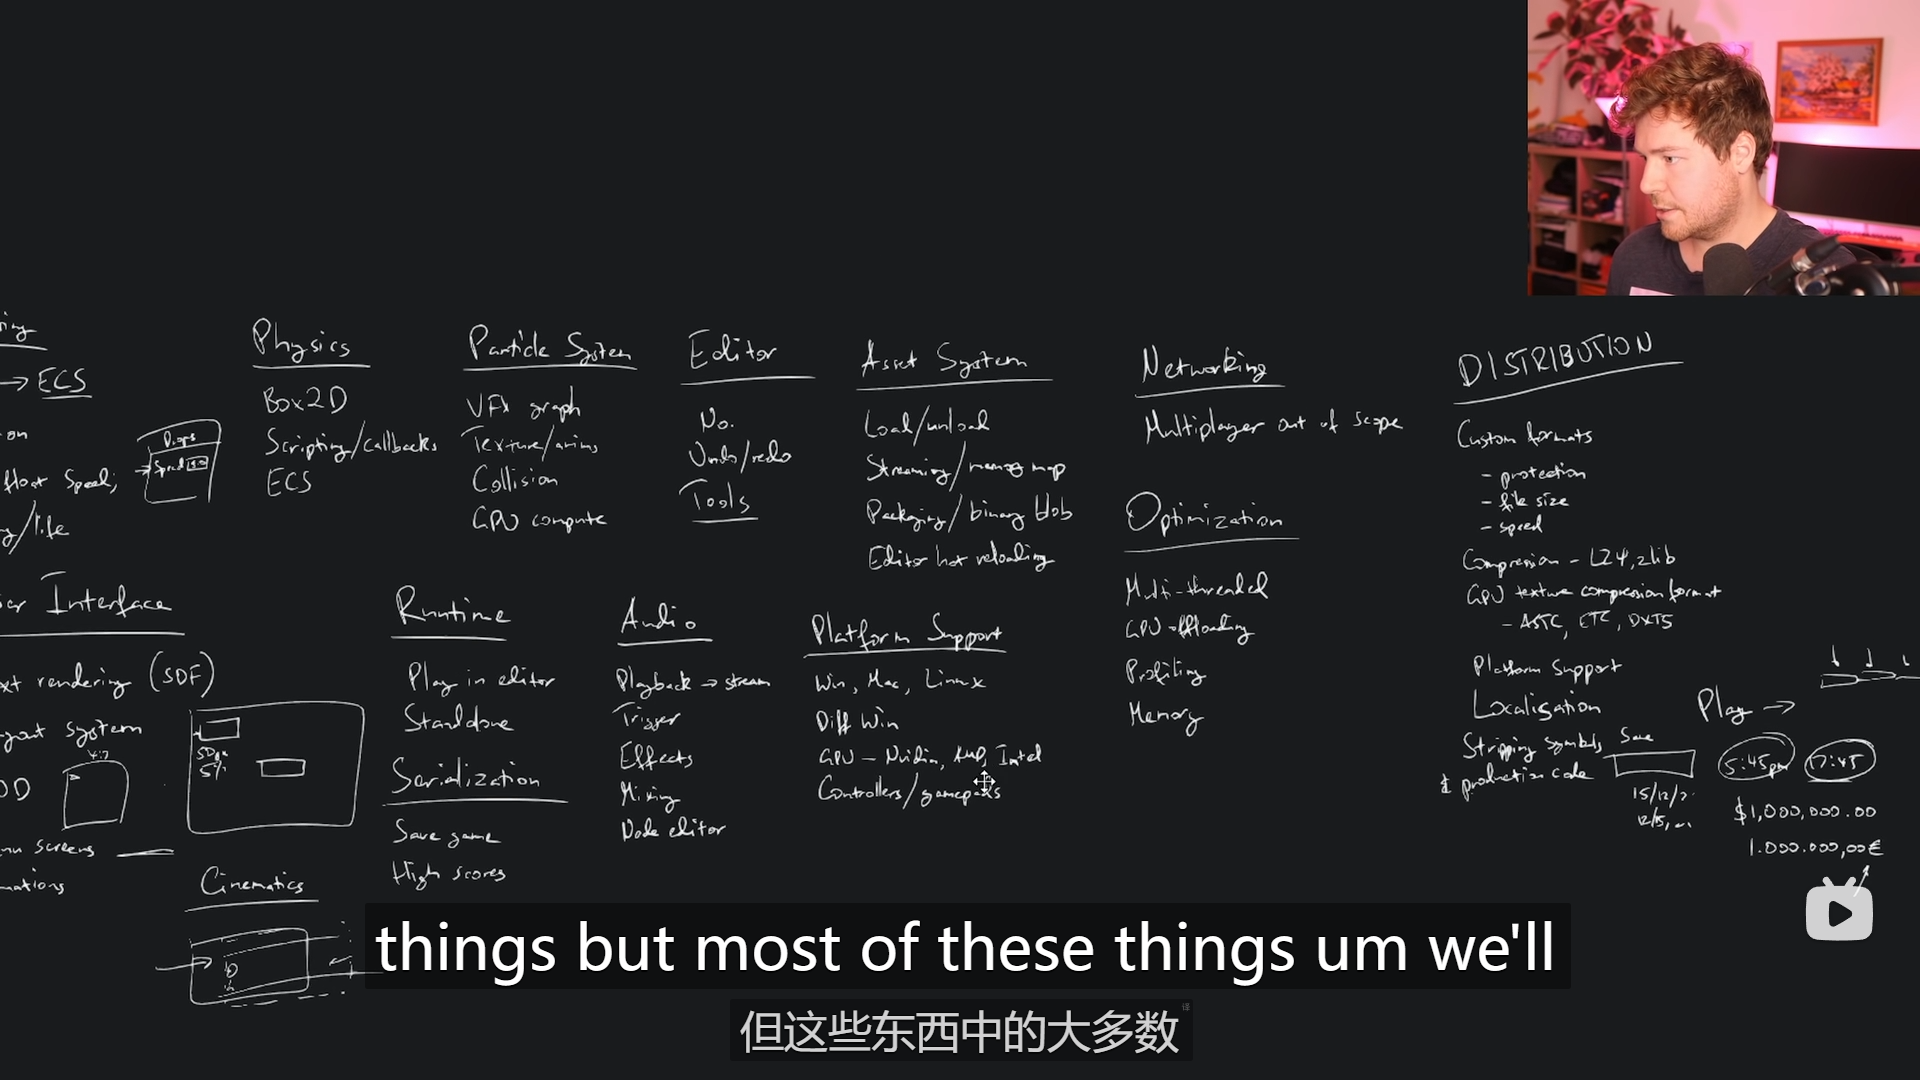 → ECS
on
float Speed;
/life
Props
Speed
Physics
Box2D
Scripting/callbacks
ECS
Particle System
VFX graph
Texture/anims
Collision
GPU compute
Editor
No.
Undo/redo
Tools
Asset System
Load/unload
Streaming/memory map
Packaging/binary blob
Editor hot reloading
Networking
Multiplayer out of scope
Optimization
Multi-threaded
GPU offloading
Profiling
Memory
DISTRIBUTION
Custom formats
- protection
- file size
- speed
Compression - LZ4, zlib
GPU texture compression format
- ASTC, ETC, DXT5
Platform Support
Localisation
Stripping symbols
& production code
Play →
Save
5:45pm
17:45
15/12/2
$1,000,000.00
1.000.000,00€
Interface
xt rendering (SDF)
yout system
50px
5%
OD
screens
mations
Cinematics
Runtime
Play in editor
Standalone
Serialization
Save game
High scores
Audio
Playback → stream
Trigger
Effects
Mixing
Node editor
Platform Support
Win, Mac, Linux
Diff Win
GPU - Nvidia, AMD, Intel
Controllers/gamepads
things but most of these things um we'll
但这些东西中的大多数